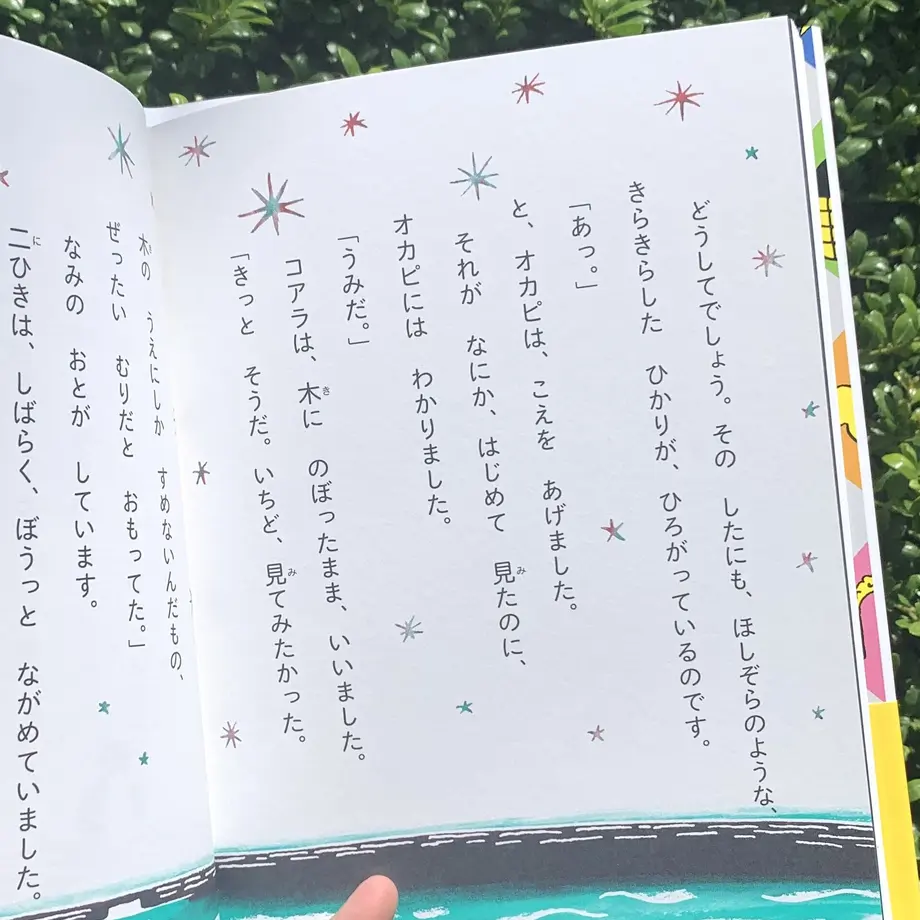 どうしてでしょう。その したにも、ほしぞらのような、
きらきらした ひかりが、ひろがっているのです。
「あっ。」
と、オカピは、こえを あげました。
それが なにか、はじめて 見たのに、
オカピには わかりました。
「うみだ。」
コアラは、木に のぼったまま、いいました。
「きっと そうだ。いちど、見てみたかった。
木の うえにしか すめないんだもの、
ぜったい むりだと おもってた。」
なみの おとが しています。
二ひきは、しばらく、ぼうっと ながめていました。